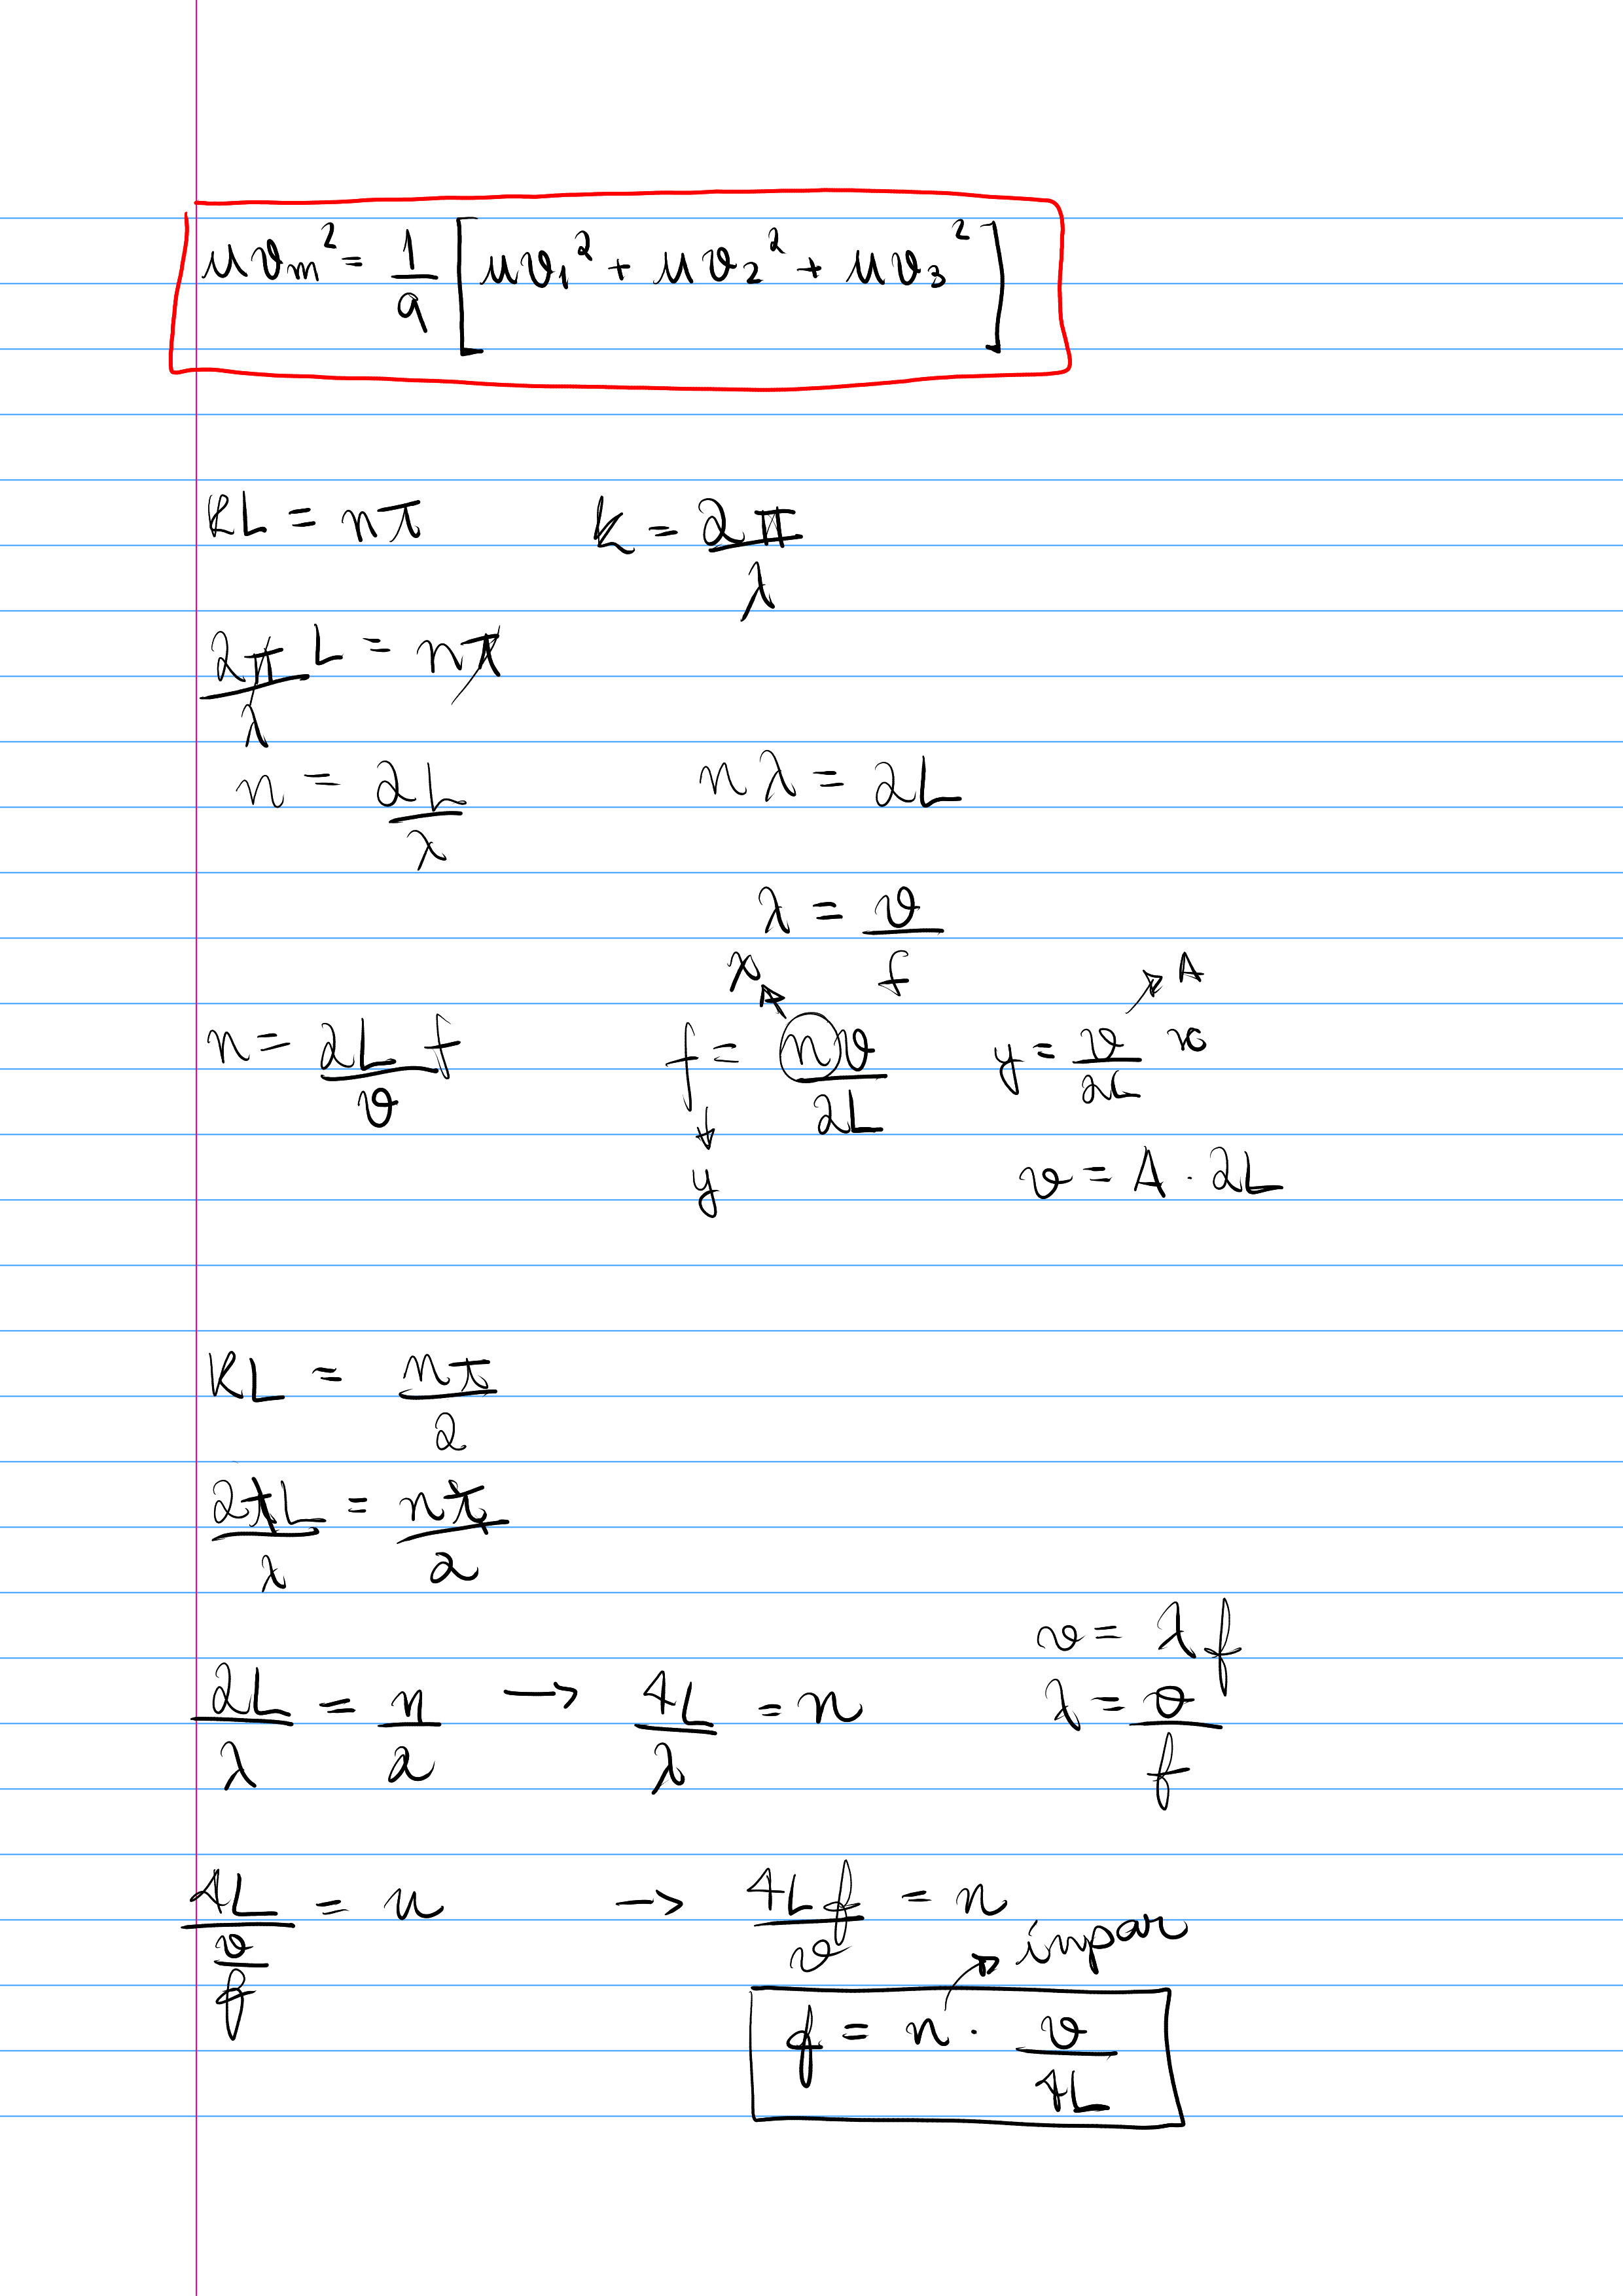 uv_m² = 1/9 [uv₁² + uv₂² + uv₃²]
kL = nπ    k = 2π/λ
2π/λ L = nπ
n = 2L/λ    nλ = 2L
λ = v/f
n = 2L/v f    f = nv/2L    y = v/2L x
x
A
y
v = A · 2L
kL = nπ/2
2πL/λ = nπ/2
2L/λ = n/2 → 4L/λ = n
v = λf
λ = v/f
4L/(v/f) = n → 4Lf/v = n
impar
f = n · v/4L